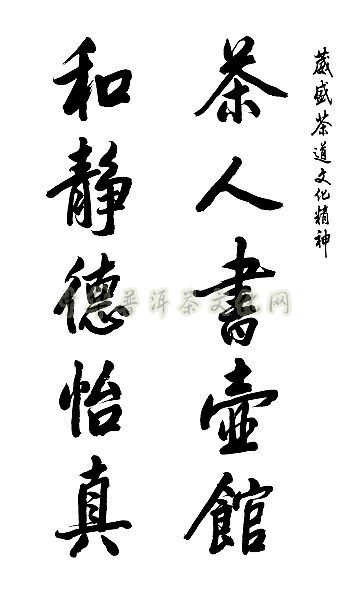 葳盛茶道文化精神
茶人書壺館
和靜德怡真
中华普洱茶文化网